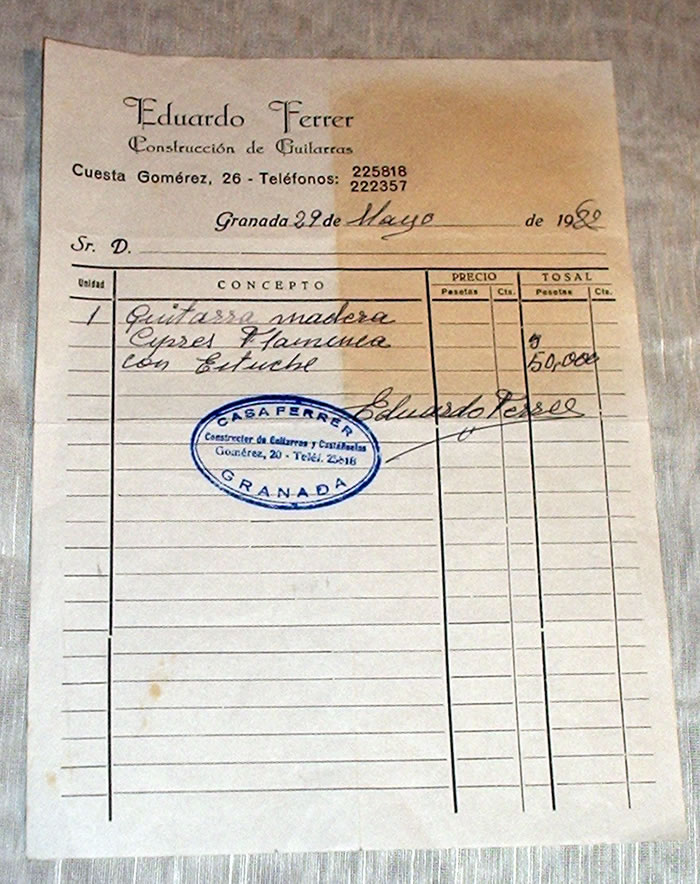 Eduardo Ferrer
Construcción de Guitarras
Cuesta Gomérez, 26 - Teléfonos: 225818
222357
Granada 29 de Mayo de 1982
Sr. D.
Unidad CONCEPTO PRECIO TOSAL
Pesetas Cts. Pesetas Cts.
1 Guitarra madera
Cypres Flamenca
con Estuche 50,000
Eduardo Ferrer
CASA FERRER
Constructor de Guitarras y Castañuelas
Gomérez, 20 - Teléf. 25818
GRANADA